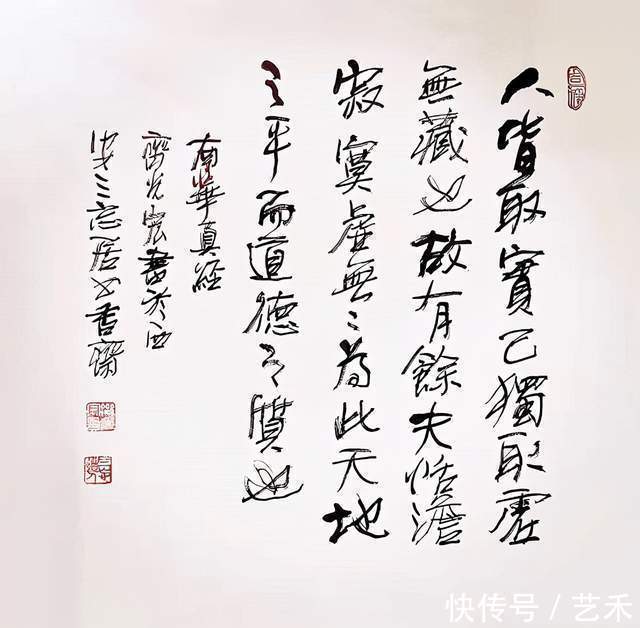 人皆取實己獨取虛
無藏也故有餘夫恬澹
寂寞虛無〻為此天地
之平而道德之質也
南華真經
齊光宏書於西
三忘居香齋
快传号 / 艺禾